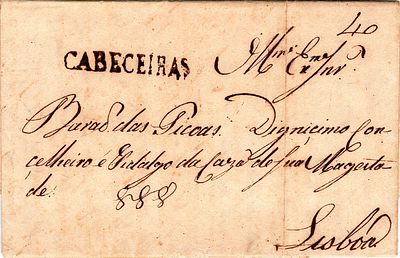 40
CABECEIRAS
Illmo Exmo Snr.
Barão das Picoas. Dignicimo Con
celheiro e Fidalgo da Caza de Sua Magesta
de.
Lisboa